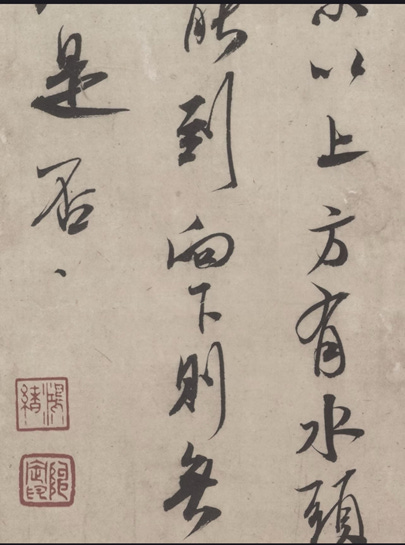 以上方有水頭
能到向下則無
是否、
鴻緒